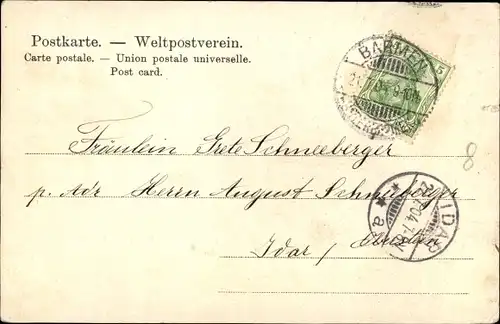 Postkarte. — Weltpostverein.
Carte postale. — Union postale universelle.
Post card.
BARMEN
5
Fräulein Grete Schneeberger
8
p. Adr Herrn August Schneeberger
IDAR
Idar,